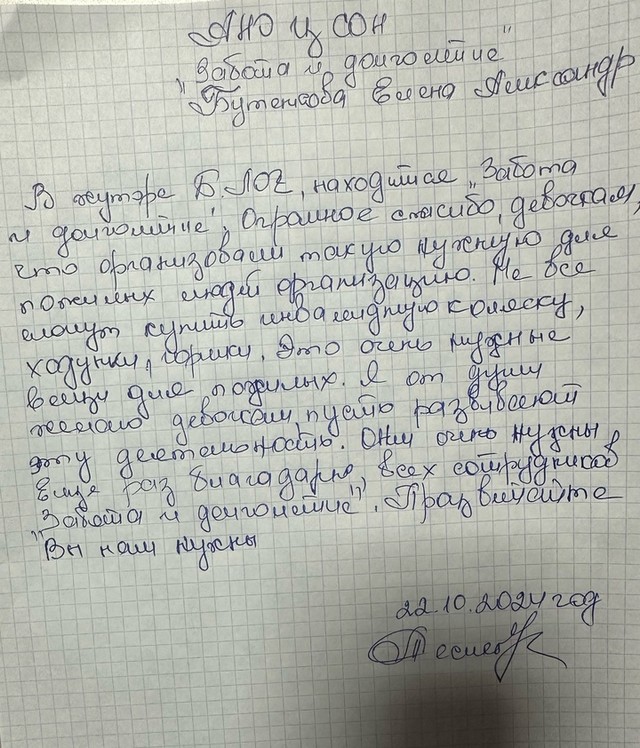 АНО ЦСОН
"Забота и долголетие"
Бутенкова Елена Александр
В хуторе Б. ЛОГ, находится "Забота
и долголетие", Огромное спасибо, девочкам,
что организовали такую нужную для
пожилых людей организацию. Не все
могут купить инвалидную коляску,
ходунки, горшки. Это очень нужные
вещи для пожилых. Я от души
желаю девочкам, пусть развивают
эту деятельность. Они очень нужны
Еще раз благадарю всех сотрудников
"Забота и долголетие". Празвивайте
Вы нам нужны
22.10.2024 год